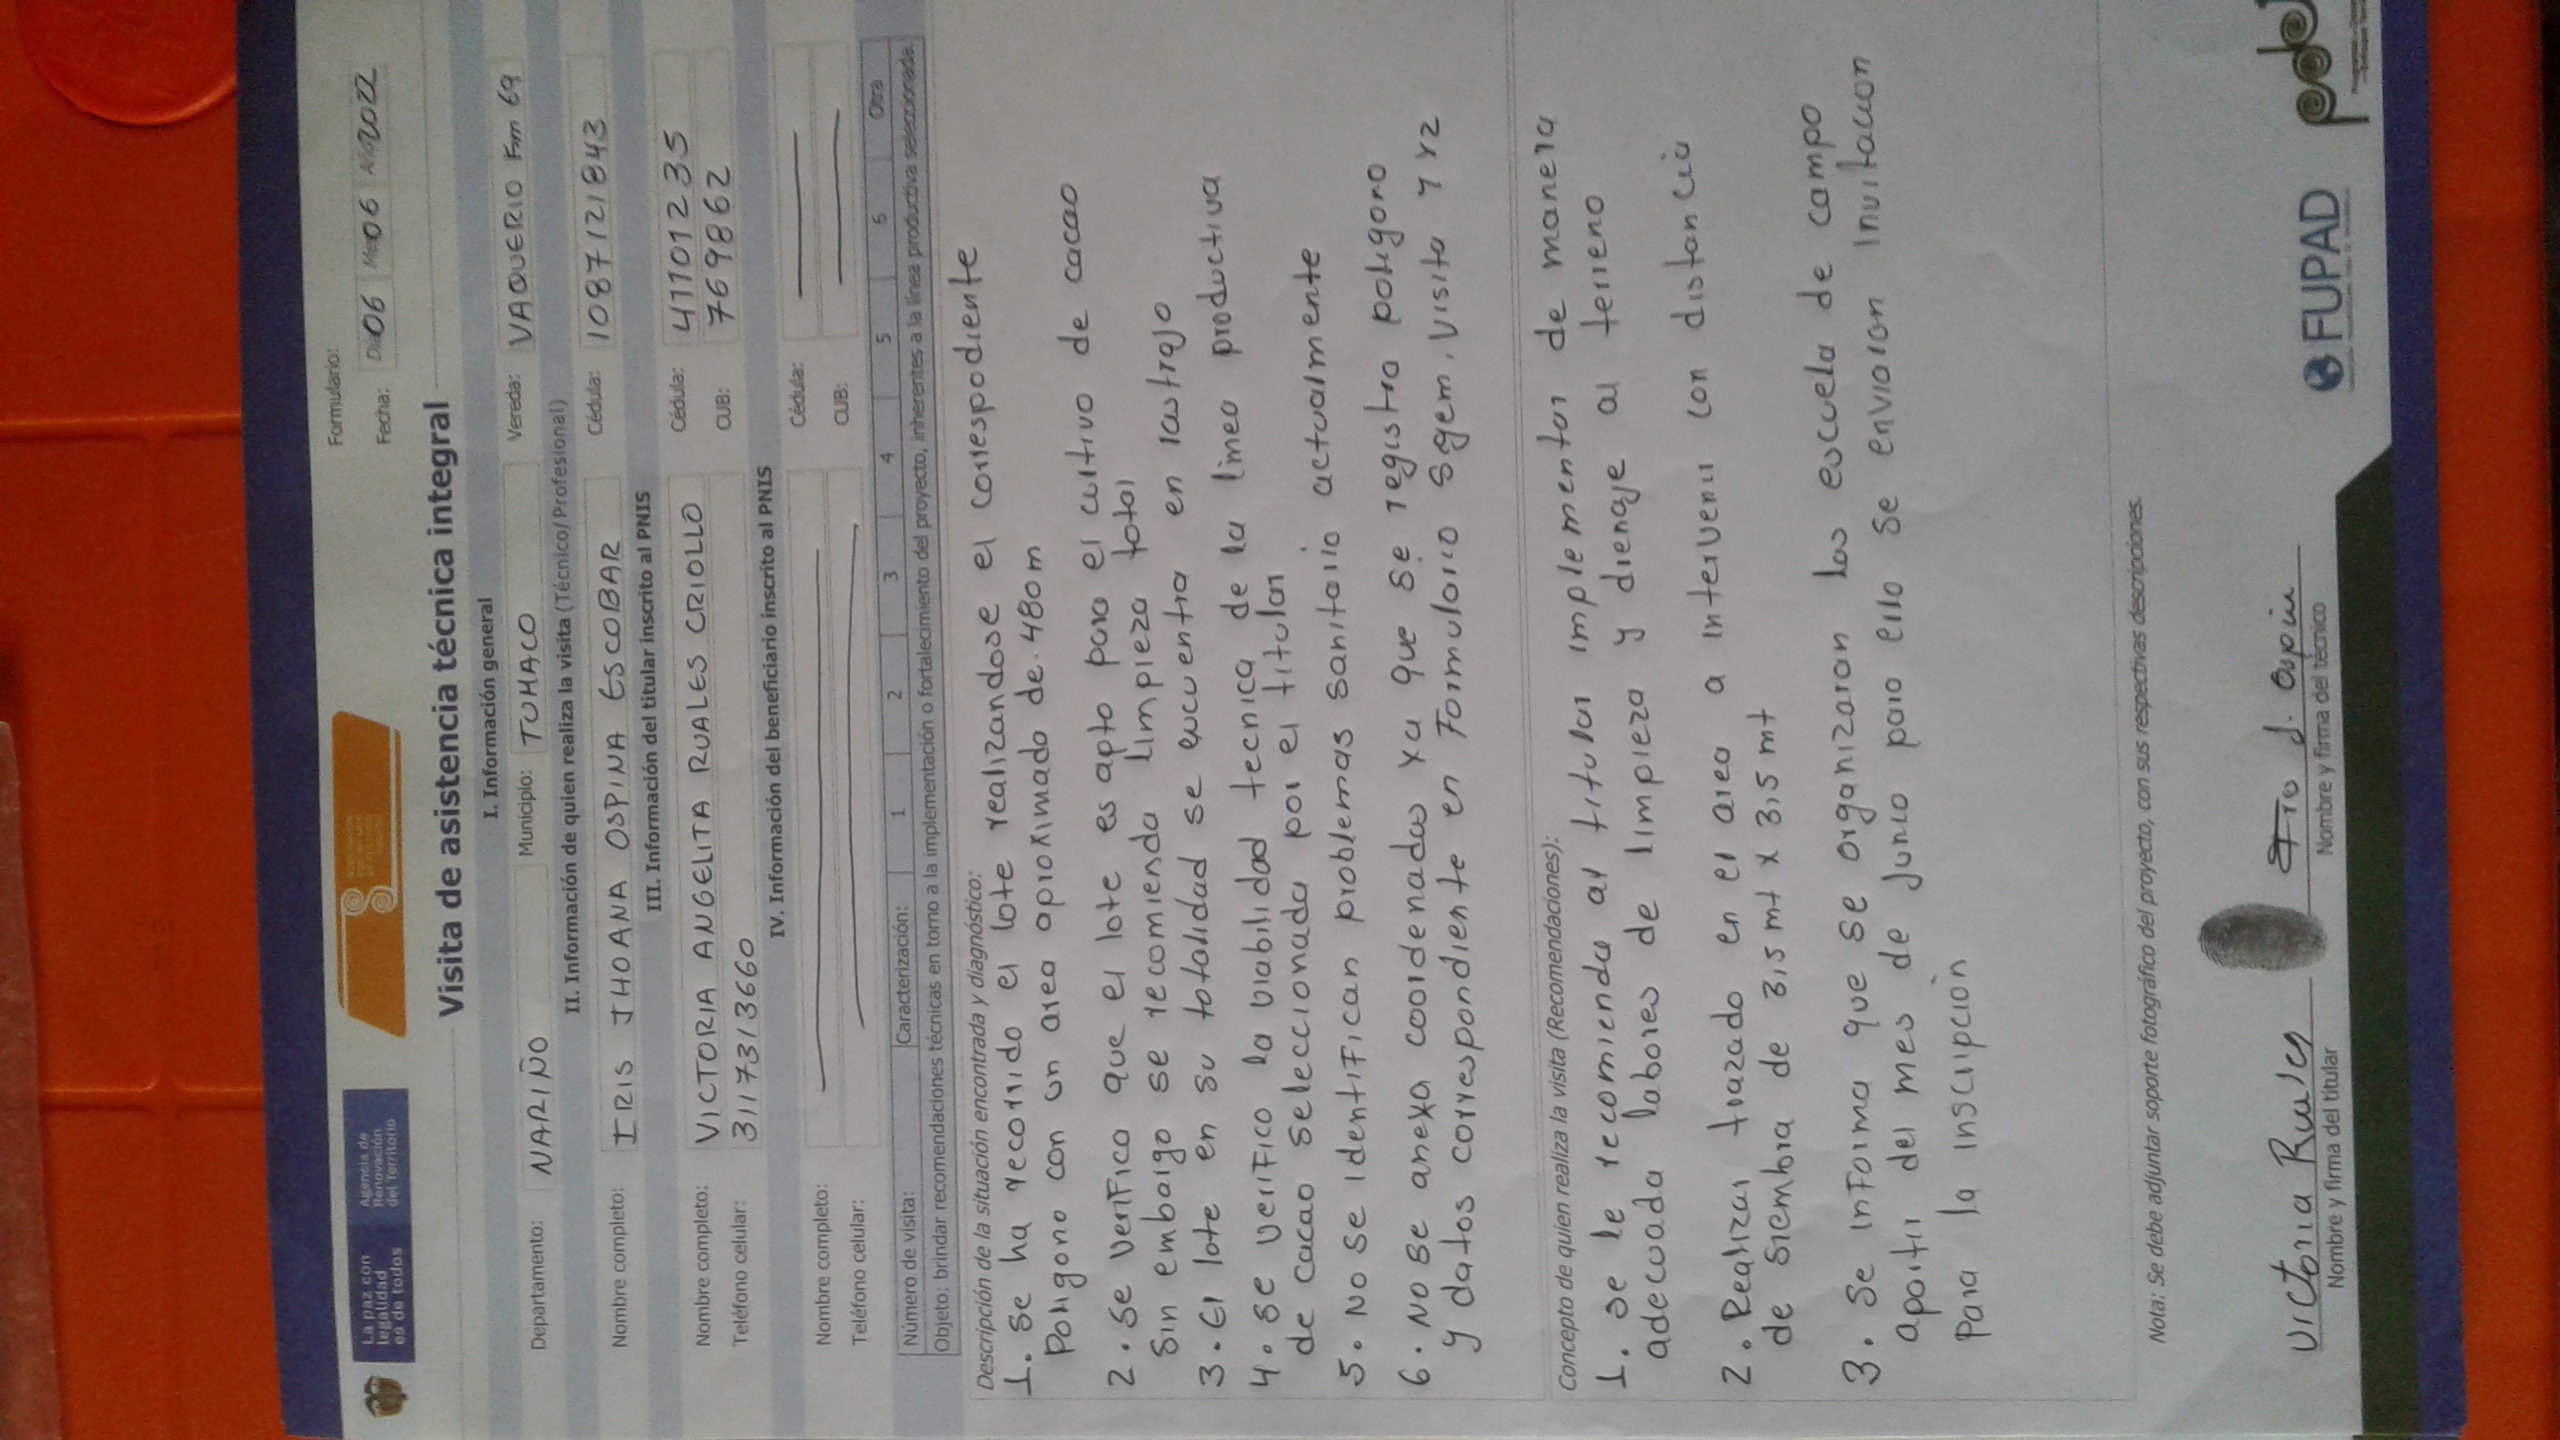 La paz con
legalidad
es de todos
Agencia de
Renovación
del Territorio
Formulario:
Fecha: Día 06 Mes 06 Año 2022
Visita de asistencia técnica integral
I. Información general
Departamento: NARIÑO Municipio: TUMACO Vereda: VAQUERIO Fm 69
II. Información de quien realiza la visita (Técnico/Profesional)
Nombre completo: IRIS JHOANA OSPINA ESCOBAR Cédula: 1087121843
III. Información del titular inscrito al PNIS
Nombre completo: VICTORIA ANGELITA RUALES CRIOLLO Cédula: 41101235
Teléfono celular: 3117313660 CUB: 7698862
IV. Información del beneficiario inscrito al PNIS
Nombre completo: Cédula:
Teléfono celular: CUB:
Número de visita: Caracterización: 1 2 3 4 5 6 Otra
Objeto: brindar recomendaciones técnicas en torno a la implementación o fortalecimiento del proyecto, inherentes a la línea productiva seleccionada.
Descripción de la situación encontrada y diagnóstico:
1. se ha recorrido el lote realizandose el correspodiente
Poligono con un area aproximado de. 480m
2. se verifico que el lote es apto para el cultivo de cacao
sin embargo se recomienda limpieza total
3. El lote en su totalidad se encuentra en rastrajo
4. se verifico la viabilidad tecnica de la linea productiva
de cacao seleccionada por el titular
5. No se identifican problemas sanitario actualmente
6. No se anexa coordenadas ya que se registro poligono
y datos correspondiente en Formulario sgem. visita 1 y 2
Concepto de quien realiza la visita (Recomendaciones):
1. se le recomienda al titular implementar de manera
adecuada labores de limpieza y drenaje al terreno
2. Realizar trazado en el area a intervenir con distancia
de siembra de 3,5 mt x 3,5 mt
3. se informa que se organizaran las escuela de campo
apartir del mes de junio para ello se enviaran invitacion
Para la inscripción
Nota: Se debe adjuntar soporte fotográfico del proyecto, con sus respectivas descripciones.
Victoria Ruales
Nombre y firma del titular
Nombre y firma del técnico
FUPAD